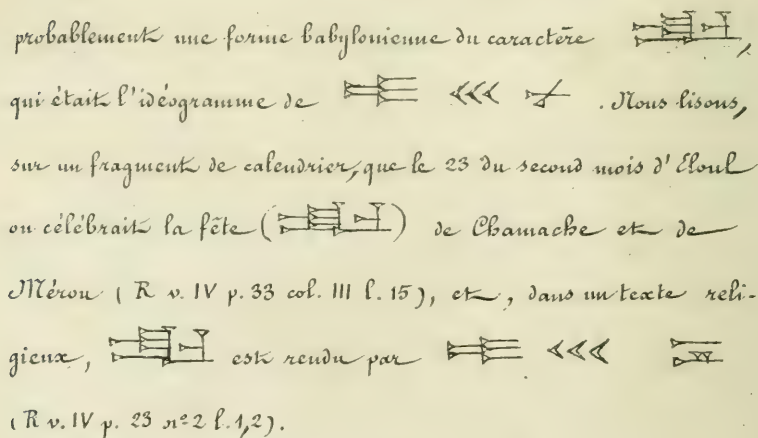 probablement une forme babylonienne du caractère ,
qui était l'idéogramme de . Nous lisons,
sur un fragment de calendrier, que le 23 du second mois d'Eloul
on célébrait la fête ( ) de Chamache et de
Mérou ( R v. IV p. 33 col. III l. 15), et, dans un texte reli-
gieux, est rendu par
( R v. IV p. 23 nº 2 l. 1,2).